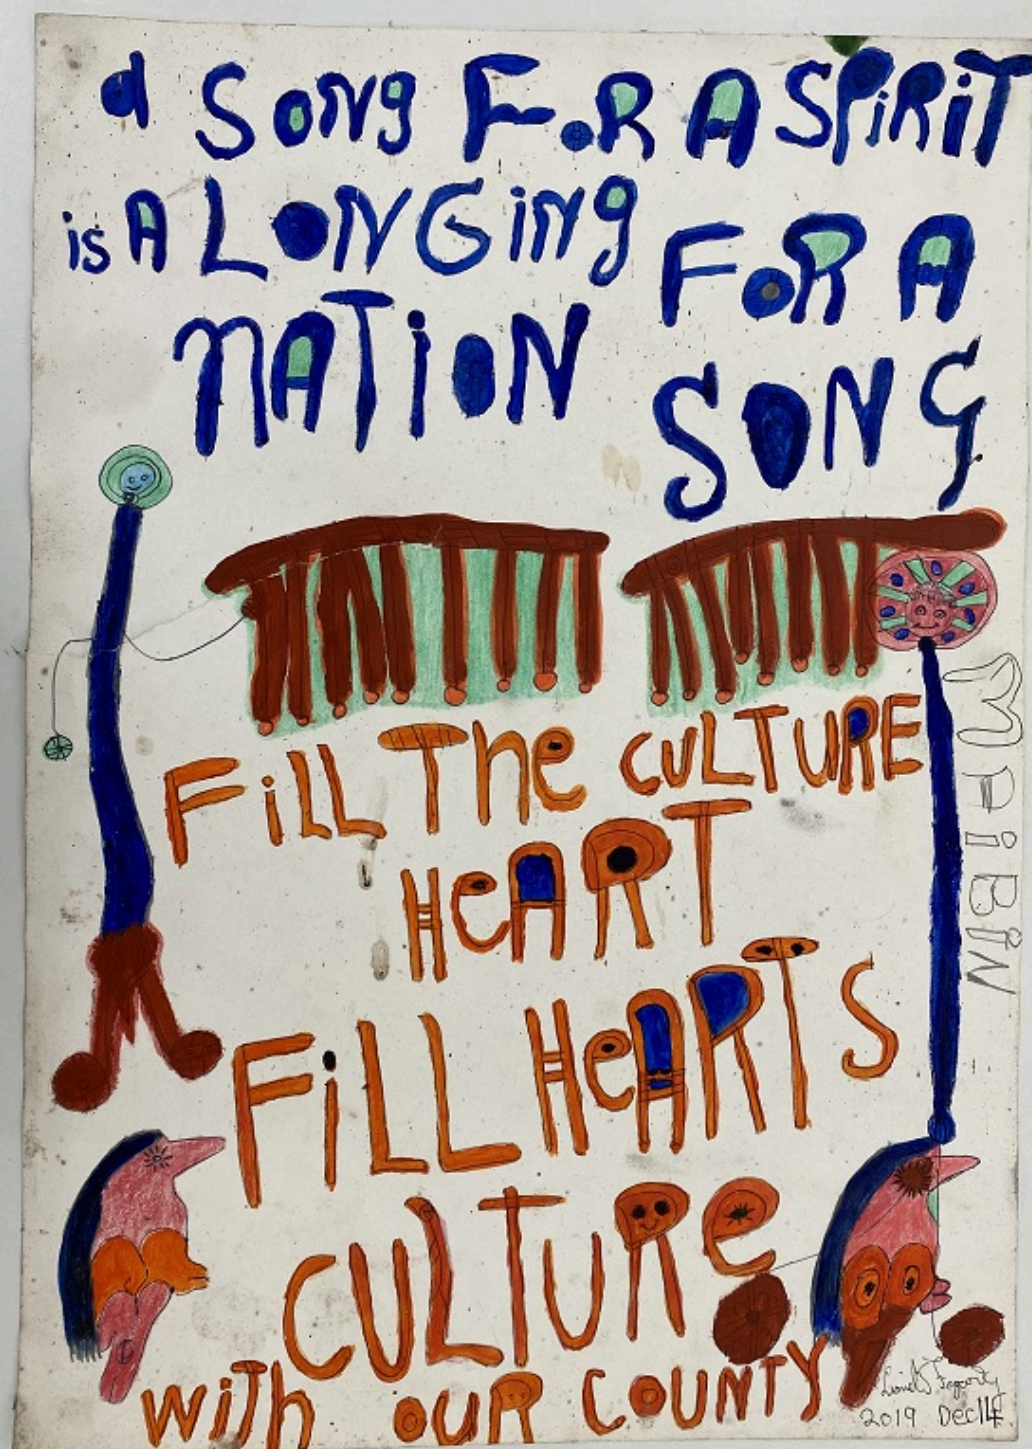 a SONg FOR A SPiRiT
is A LONGiNg FOR A
NATiON SONG
FiLL The CULTURE
HeART
FiLL HeARTS
CULTURe
wiTh OUR COUNTY
MPiBiN
Lionel Fogarty
2019 Dec 14